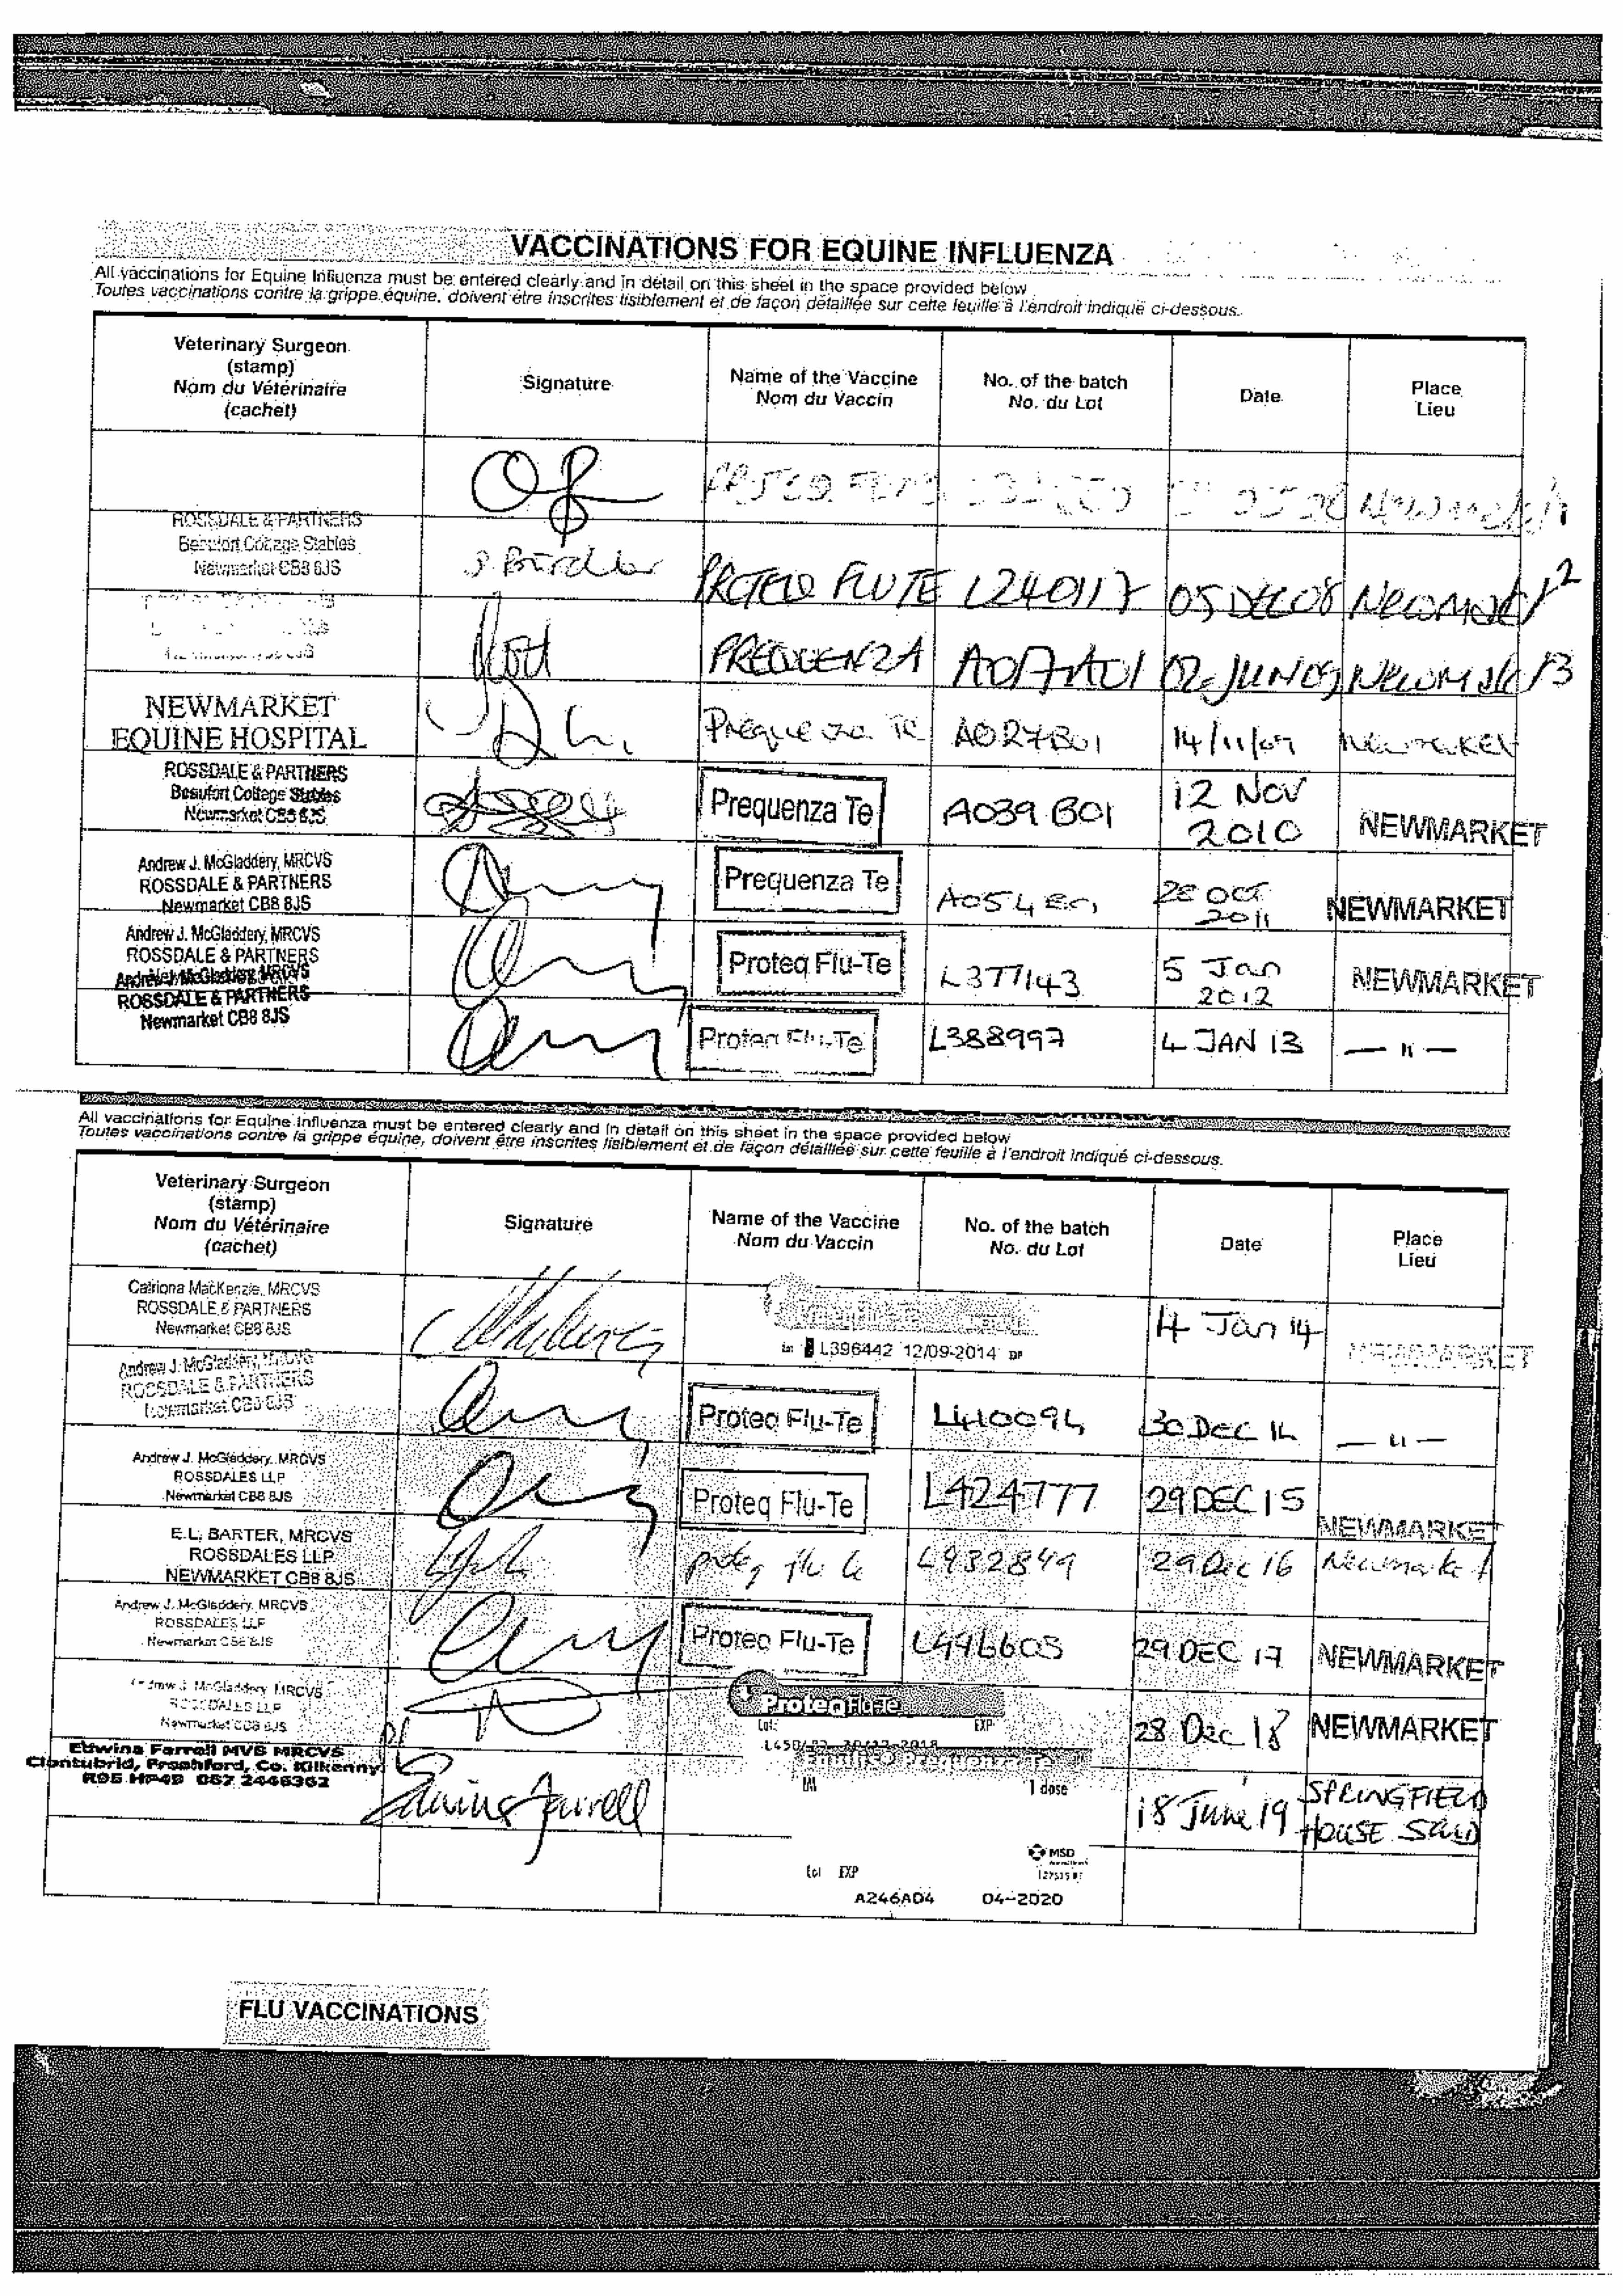 VACCINATIONS FOR EQUINE INFLUENZA
All vaccinations for Equine Influenza must be entered clearly and in detail on this sheet in the space provided below
Toutes vaccinations contre la grippe équine, doivent être inscrites lisiblement et de façon détaillée sur cette feuille à l'endroit indiqué ci-dessous.
Veterinary Surgeon
(stamp)
Nom du Vétérinaire
(cachet)
Signature
Name of the Vaccine
Nom du Vaccin
No. of the batch
No. du Lot
Date
Place
Lieu
Newmarket
ROSSDALE & PARTNERS
Beaufort Cottage Stables
Newmarket CB8 8JS
PROTEQ FLUTE L240117 05 DEC 08 Newmarket 2
PREQUENZA A017A01 02 JUN 09 Newmarket 3
NEWMARKET
EQUINE HOSPITAL
Prequenza Te A027B01 14/11/09 Newmarket
ROSSDALE & PARTNERS
Beaufort Cottage Stables
Newmarket CB8 8JS
Prequenza Te A039 B01 12 NOV 2010 NEWMARKET
Andrew J. McGladdery, MRCVS
ROSSDALE & PARTNERS
Newmarket CB8 8JS
Prequenza Te OCT 2011 NEWMARKET
Andrew J. McGladdery, MRCVS
ROSSDALE & PARTNERS
Proteq Flu-Te L377143 5 Jan 2012 NEWMARKET
Andrew J. McGladdery, MRCVS
ROSSDALE & PARTNERS
Newmarket CB8 8JS
Proteq Flu-Te L388997 4 JAN 13 — " —
All vaccinations for Equine Influenza must be entered clearly and in detail on this sheet in the space provided below
Toutes vaccinations contre la grippe équine, doivent être inscrites lisiblement et de façon détaillée sur cette feuille à l'endroit indiqué ci-dessous.
Veterinary Surgeon
(stamp)
Nom du Vétérinaire
(cachet)
Signature
Name of the Vaccine
Nom du Vaccin
No. of the batch
No. du Lot
Date
Place
Lieu
Catriona MacKenzie, MRCVS
ROSSDALE & PARTNERS
Newmarket CB8 8JS
L396442 12/09-2014
4 Jan 14 NEWMARKET
Andrew J. McGladdery, MRCVS
ROSSDALE & PARTNERS
Newmarket CB8 8JS
Proteq Flu-Te L410094 30 DEC 14 — " —
Andrew J. McGladdery, MRCVS
ROSSDALES LLP
Newmarket CB8 8JS
Proteq Flu-Te L424777 29 DEC 15 NEWMARKET
E.L. BARTER, MRCVS
ROSSDALES LLP
NEWMARKET CB8 8JS
proteq flu te L432849 29 Dec 16 Newmarket
Andrew J. McGladdery, MRCVS
ROSSDALES LLP
Newmarket CB8 8JS
Proteq Flu-Te L446605 29 DEC 17 NEWMARKET
Andrew J. McGladdery MRCVS
ROSSDALES LLP
Newmarket CB8 8JS
ProteqFlu-Te
Lot: EXP
28 Dec 18 NEWMARKET
Edwina Farrell MVB MRCVS
Clontubrid, Freshford, Co. Kilkenny
R95 HP49 087 2446362
Edwina Farrell
Equilis Prequenza Te
IM 1 dose
18 June 19 SPRINGFIELD
HOUSE STUD
MSD
Lot EXP
A246A04 04-2020
FLU VACCINATIONS